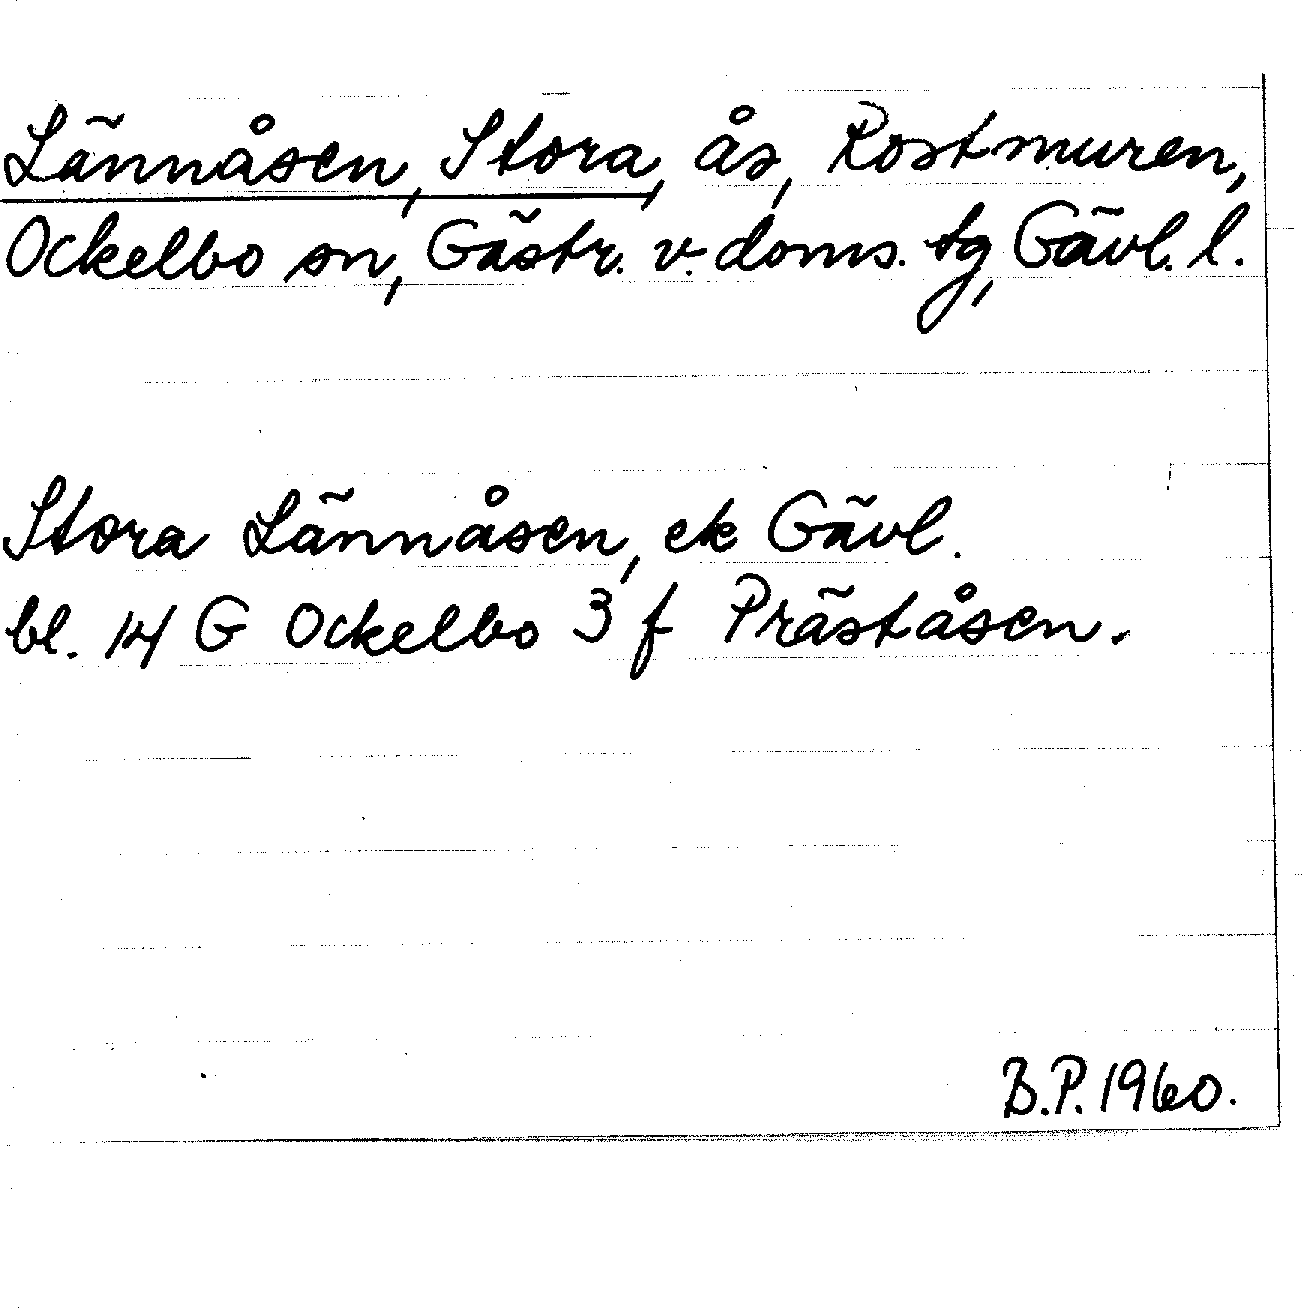 Lännåsen, Stora, ås, Rostmuren,
Ockelbo sn, Gästr. v. doms. tg, Gävl. l.
Stora Lännåsen, ek Gävl.
bl. 14 G Ockelbo 3 f Präståsen.
B.P. 1960.